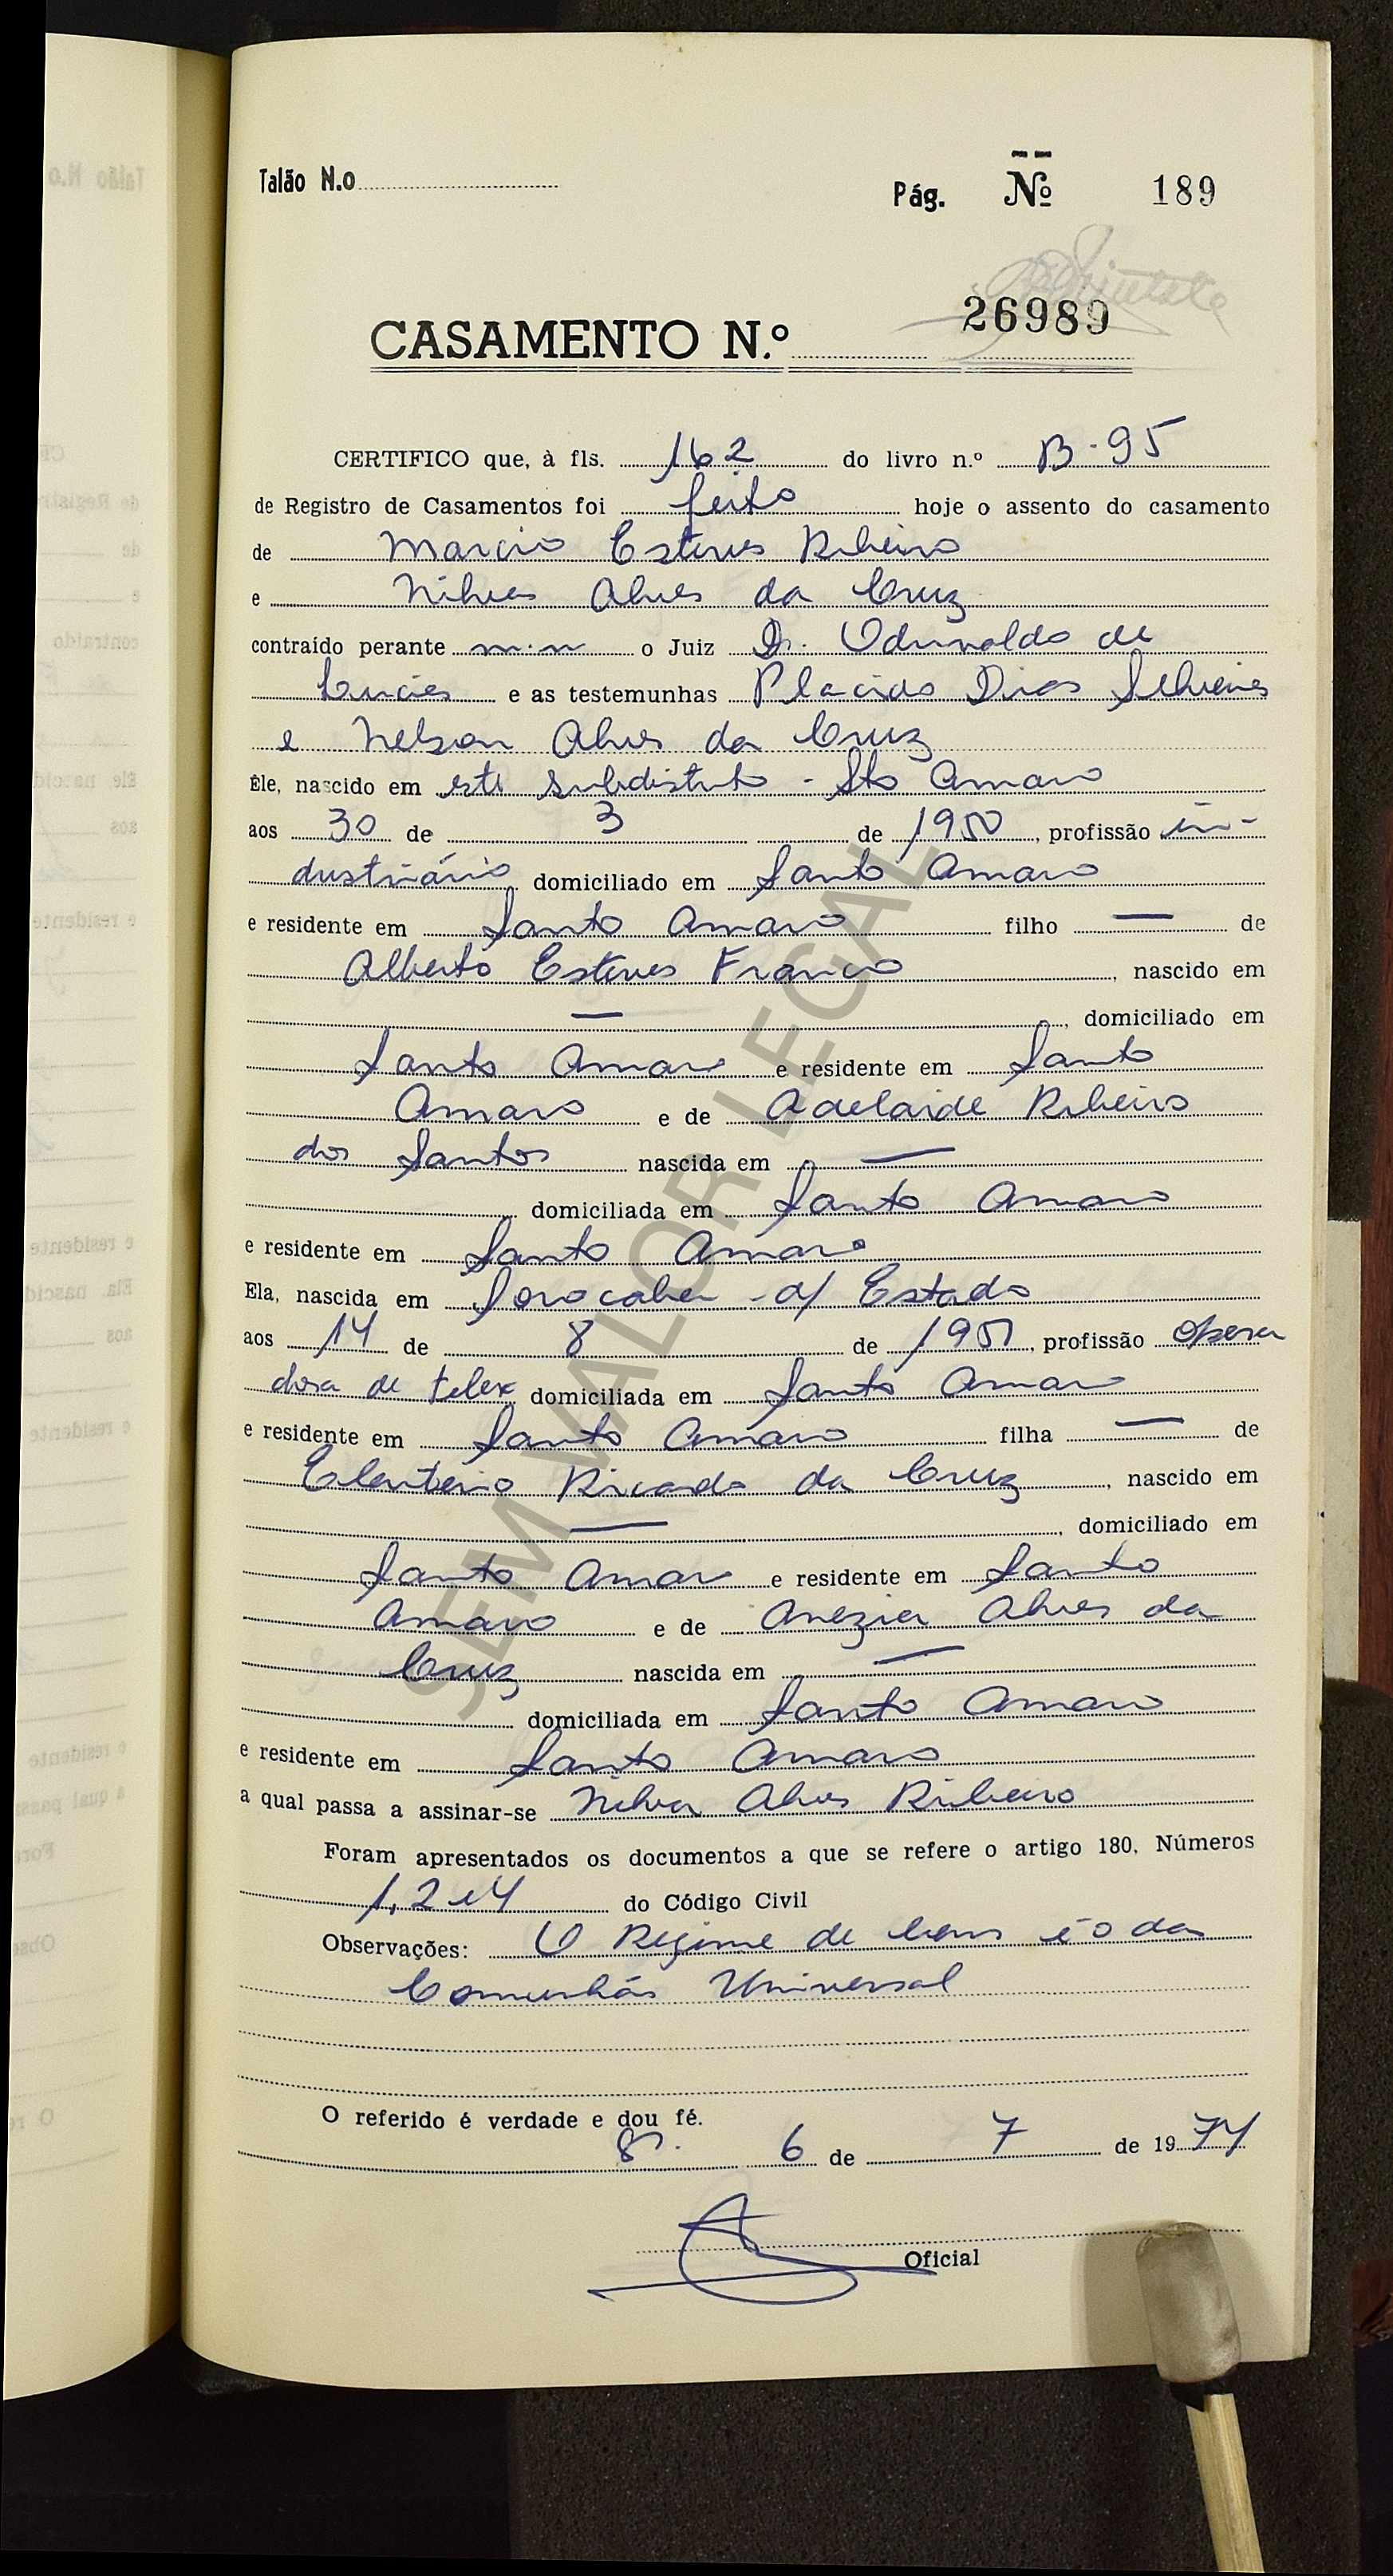 Talão N.o
Pág. Nº 189
26989
CASAMENTO N.º
CERTIFICO que, à fls. 162 do livro n.º B-95
de Registro de Casamentos foi feito hoje o assento do casamento
de Marcio Esteves Ribeiro
e Nilva Alves da Cruz
contraído perante o Juiz Dr. de
e as testemunhas Placido Dias
e Nelson Alves da Cruz
Êle, nascido em este subdistrito - Sto Amaro
aos 30 de 3 de 1950, profissão in-
dustriário domiciliado em Santo Amaro
e residente em Santo Amaro filho — de
Alberto Esteves Franco, nascido em
—, domiciliado em
Santo Amaro e residente em Santo
Amaro e de Adelaide Ribeiro
dos Santos nascida em —
domiciliada em Santo Amaro
e residente em Santo Amaro
Ela, nascida em Sorocaba - d/ Estado
aos 14 de 8 de 1951, profissão opera
dora de telex domiciliada em Santo Amaro
e residente em Santo Amaro filha — de
Eleuterio Ricardo da Cruz, nascido em
—, domiciliado em
Santo Amaro e residente em Santo
Amaro e de Anezia Alves da
Cruz nascida em —
domiciliada em Santo Amaro
e residente em Santo Amaro
a qual passa a assinar-se Nilva Alves Ribeiro
Foram apresentados os documentos a que se refere o artigo 180, Números
1, 2 e 4 do Código Civil
Observações: O Regime de bens é o da
Comunhão Universal
O referido é verdade e dou fé.
6 de 7 de 1974
Oficial
SEM VALOR LEGAL